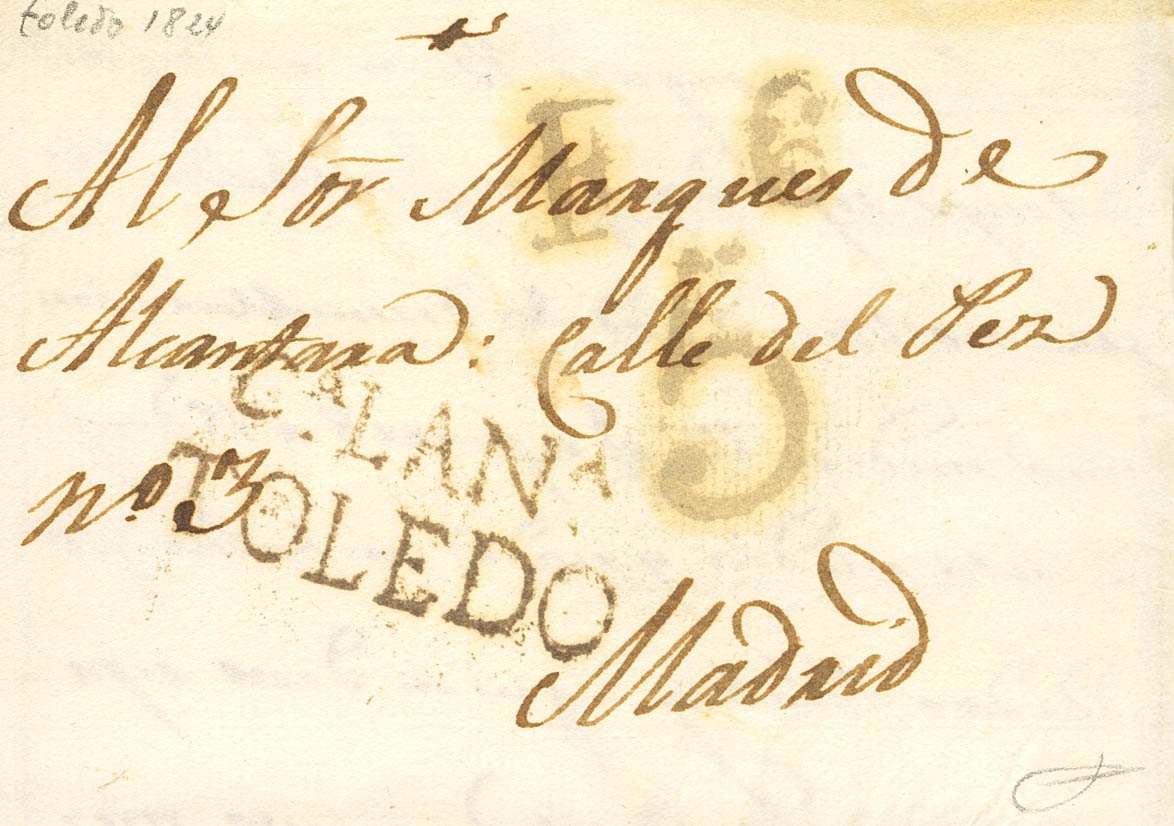 toledo 1824
Al Sor Marques de
Alcantara: Calle del Pez
nº 3
Cª. LANª.
TOLEDO
Madrid